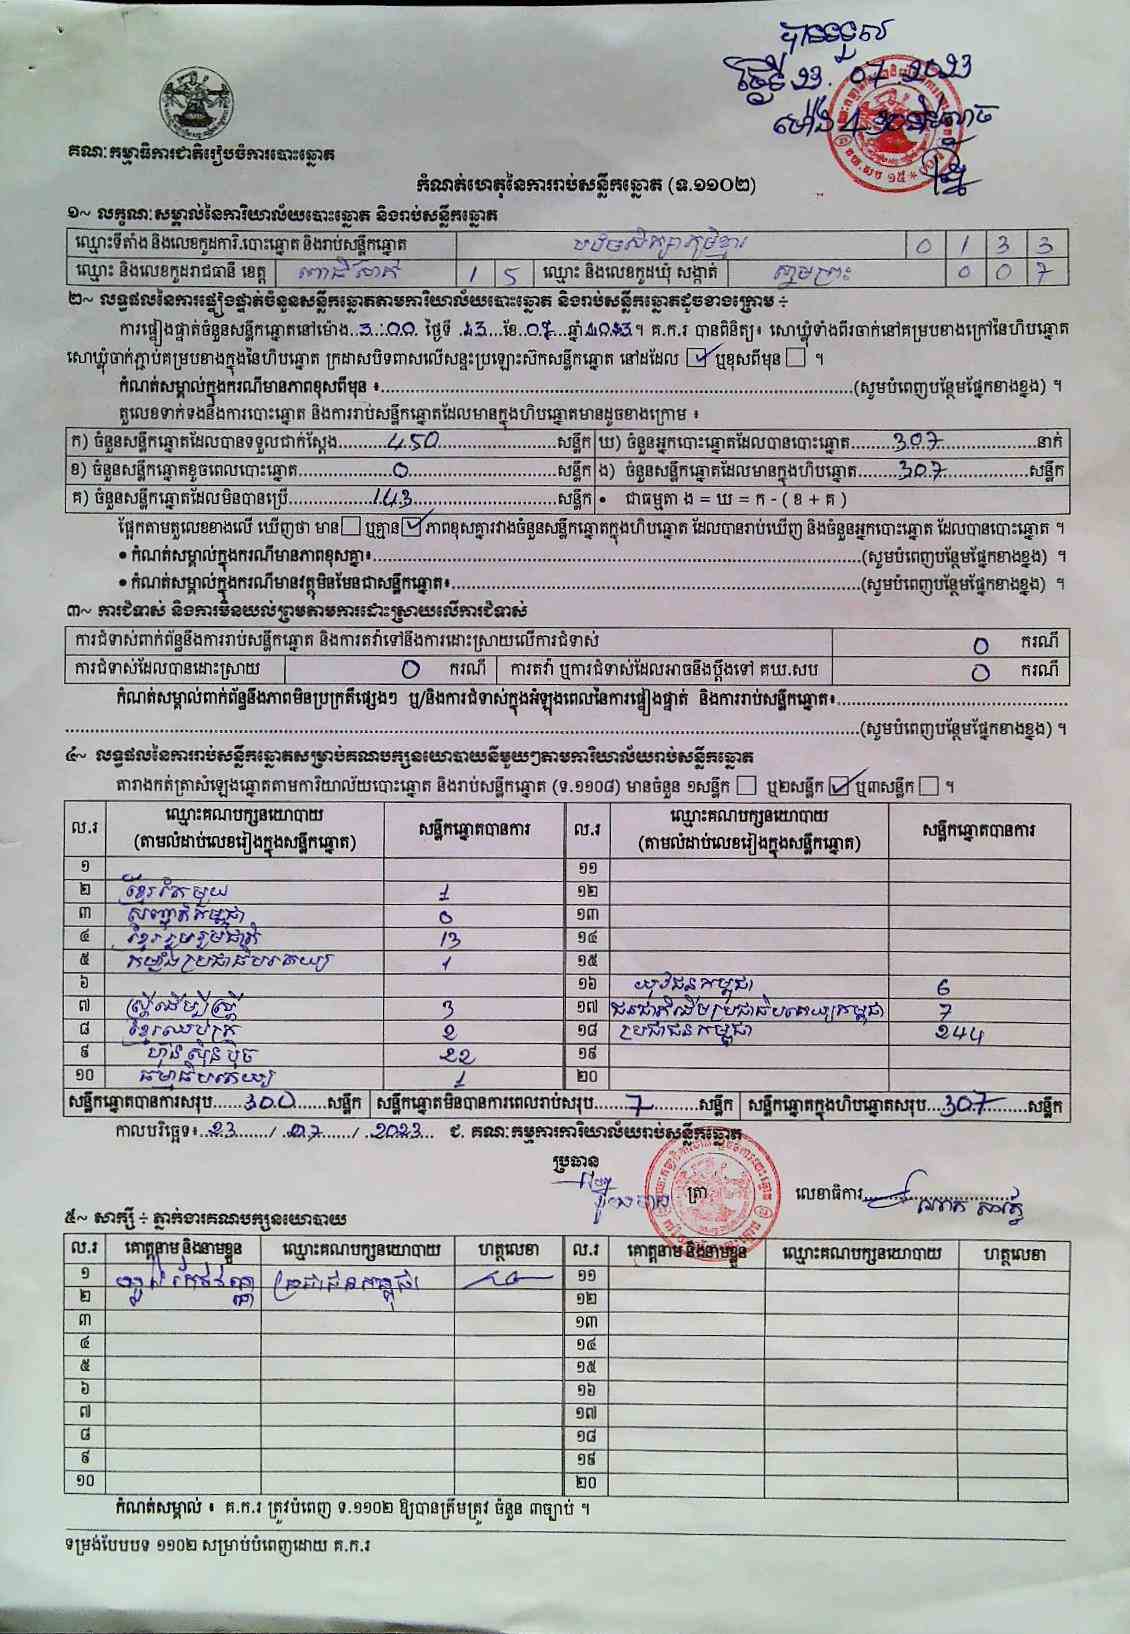 បានទទួល
ថ្ងៃទី 23. 07. 2023
ម៉ោង 4
គណៈកម្មាធិការជាតិរៀបចំការបោះឆ្នោត
កំណត់ហេតុនៃការរាប់សន្លឹកឆ្នោត (ទ.១១០២)
១~ លក្ខណៈសម្គាល់នៃការិយាល័យបោះឆ្នោត និងរាប់សន្លឹកឆ្នោត
ឈ្មោះទីតាំង និងលេខកូដការិ.បោះឆ្នោត និងរាប់សន្លឹកឆ្នោត 0 1 3 3
ឈ្មោះ និងលេខកូដរាជធានី ខេត្ត ពោធិ៍សាត់ 1 5 ឈ្មោះ និងលេខកូដឃុំ សង្កាត់ 0 0 7
២~ លទ្ធផលនៃការផ្ទៀងផ្ទាត់ចំនួនសន្លឹកឆ្នោតតាមការិយាល័យបោះឆ្នោត និងរាប់សន្លឹកឆ្នោតដូចខាងក្រោម ÷
ការផ្ទៀងផ្ទាត់ចំនួនសន្លឹកឆ្នោតនៅម៉ោង..3:00 ថ្ងៃទី .23..ខែ.07..ឆ្នាំ2023។ គ.ក.រ បានពិនិត្យ៖ សោឃ្លុំទាំងពីរចាក់នៅគម្របខាងក្រៅនៃហិបឆ្នោត
សោឃ្លុំចាក់ភ្ជាប់គម្របខាងក្នុងនៃហិបឆ្នោត ក្រដាសបិទពាសលើសន្ទះប្រឡោះសិកសន្លឹកឆ្នោត នៅដដែល ☑ ឬខុសពីមុន ☐ ។
កំណត់សម្គាល់ក្នុងករណីមានភាពខុសពីមុន ៖......(សូមបំពេញបន្ថែមផ្នែកខាងខ្នង) ។
តួលេខទាក់ទងនឹងការបោះឆ្នោត និងការរាប់សន្លឹកឆ្នោតដែលមានក្នុងហិបឆ្នោតមានដូចខាងក្រោម ៖
ក) ចំនួនសន្លឹកឆ្នោតដែលបានទទួលជាក់ស្តែង......450......សន្លឹក ឃ) ចំនួនអ្នកបោះឆ្នោតដែលបានបោះឆ្នោត......307......នាក់
ខ) ចំនួនសន្លឹកឆ្នោតខូចពេលបោះឆ្នោត......0......សន្លឹក ង) ចំនួនសន្លឹកឆ្នោតដែលមានក្នុងហិបឆ្នោត......307......សន្លឹក
គ) ចំនួនសន្លឹកឆ្នោតដែលមិនបានប្រើ......143......សន្លឹក • ជាធម្មតា ង = ឃ = ក - ( ខ + គ )
ផ្អែកតាមតួលេខខាងលើ ឃើញថា មាន ☐ ឬគ្មាន ☑ ភាពខុសគ្នារវាងចំនួនសន្លឹកឆ្នោតក្នុងហិបឆ្នោត ដែលបានរាប់ឃើញ និងចំនួនអ្នកបោះឆ្នោត ដែលបានបោះឆ្នោត ។
• កំណត់សម្គាល់ក្នុងករណីមានភាពខុសគ្នា៖......(សូមបំពេញបន្ថែមផ្នែកខាងខ្នង) ។
• កំណត់សម្គាល់ក្នុងករណីមានវត្ថុមិនមែនជាសន្លឹកឆ្នោត៖......(សូមបំពេញបន្ថែមផ្នែកខាងខ្នង) ។
៣~ ការជំទាស់ និងការមិនយល់ព្រមតាមការដោះស្រាយលើការជំទាស់
ការជំទាស់ពាក់ព័ន្ធនឹងការរាប់សន្លឹកឆ្នោត និងការតវ៉ាទៅនឹងការដោះស្រាយលើការជំទាស់ 0 ករណី
ការជំទាស់ដែលបានដោះស្រាយ 0 ករណី ការតវ៉ា ឬការជំទាស់ដែលអាចនឹងប្តឹងទៅ គឃ.សប 0 ករណី
កំណត់សម្គាល់ពាក់ព័ន្ធនឹងភាពមិនប្រក្រតីផ្សេងៗ ឬ/និងការជំទាស់ក្នុងអំឡុងពេលនៃការផ្ទៀងផ្ទាត់ និងការរាប់សន្លឹកឆ្នោត៖......
......(សូមបំពេញបន្ថែមផ្នែកខាងខ្នង) ។
៤~ លទ្ធផលនៃការរាប់សន្លឹកឆ្នោតសម្រាប់គណបក្សនយោបាយនីមួយៗតាមការិយាល័យរាប់សន្លឹកឆ្នោត
តារាងកត់ត្រាសំឡេងឆ្នោតតាមការិយាល័យបោះឆ្នោត និងរាប់សន្លឹកឆ្នោត (ទ.១១០៨) មានចំនួន ១សន្លឹក ☐ ឬ២សន្លឹក ☑ ឬ៣សន្លឹក ☐ ។
ល.រ ឈ្មោះគណបក្សនយោបាយ (តាមលំដាប់លេខរៀងក្នុងសន្លឹកឆ្នោត) សន្លឹកឆ្នោតបានការ ល.រ ឈ្មោះគណបក្សនយោបាយ (តាមលំដាប់លេខរៀងក្នុងសន្លឹកឆ្នោត) សន្លឹកឆ្នោតបានការ
១ ១១
២ ខ្មែរតែមួយ 1 ១២
៣ សញ្ជាតិកម្ពុជា 0 ១៣
៤ ខ្មែររួបរួមជាតិ 13 ១៤
៥ កម្លាំងប្រជាធិបតេយ្យ 1 ១៥
៦ ១៦ យុវជនកម្ពុជា 6
៧ ស្ត្រីដើម្បីស្ត្រី 3 ១៧ ជនជាតិដើមប្រជាធិបតេយ្យកម្ពុជា 7
៨ ខ្មែរឈប់ក្រ 2 ១៨ ប្រជាជនកម្ពុជា 244
៩ ហ្វ៊ុនស៊ិនប៉ិច 22 ១៩
១០ ធម្មាធិបតេយ្យ 1 ២០
សន្លឹកឆ្នោតបានការសរុប......300......សន្លឹក សន្លឹកឆ្នោតមិនបានការពេលរាប់សរុប......7......សន្លឹក សន្លឹកឆ្នោតក្នុងហិបឆ្នោតសរុប...307......សន្លឹក
កាលបរិច្ឆេទ៖..23....../ .07....../ .2023... ជ. គណៈកម្មការការិយាល័យរាប់សន្លឹកឆ្នោត
ប្រធាន
ត្រា
លេខាធិការ......
៥~ សាក្សី ÷ ភ្នាក់ងារគណបក្សនយោបាយ
ល.រ គោត្តនាម និងនាមខ្លួន ឈ្មោះគណបក្សនយោបាយ ហត្ថលេខា ល.រ គោត្តនាម និងនាមខ្លួន ឈ្មោះគណបក្សនយោបាយ ហត្ថលេខា
១ ប្រជាជនកម្ពុជា ១១
២ ១២
៣ ១៣
៤ ១៤
៥ ១៥
៦ ១៦
៧ ១៧
៨ ១៨
៩ ១៩
១០ ២០
កំណត់សម្គាល់ ៖ គ.ក.រ ត្រូវបំពេញ ទ.១១០២ ឱ្យបានត្រឹមត្រូវ ចំនួន ៣ច្បាប់ ។
ទម្រង់បែបបទ ១១០២ សម្រាប់បំពេញដោយ គ.ក.រ